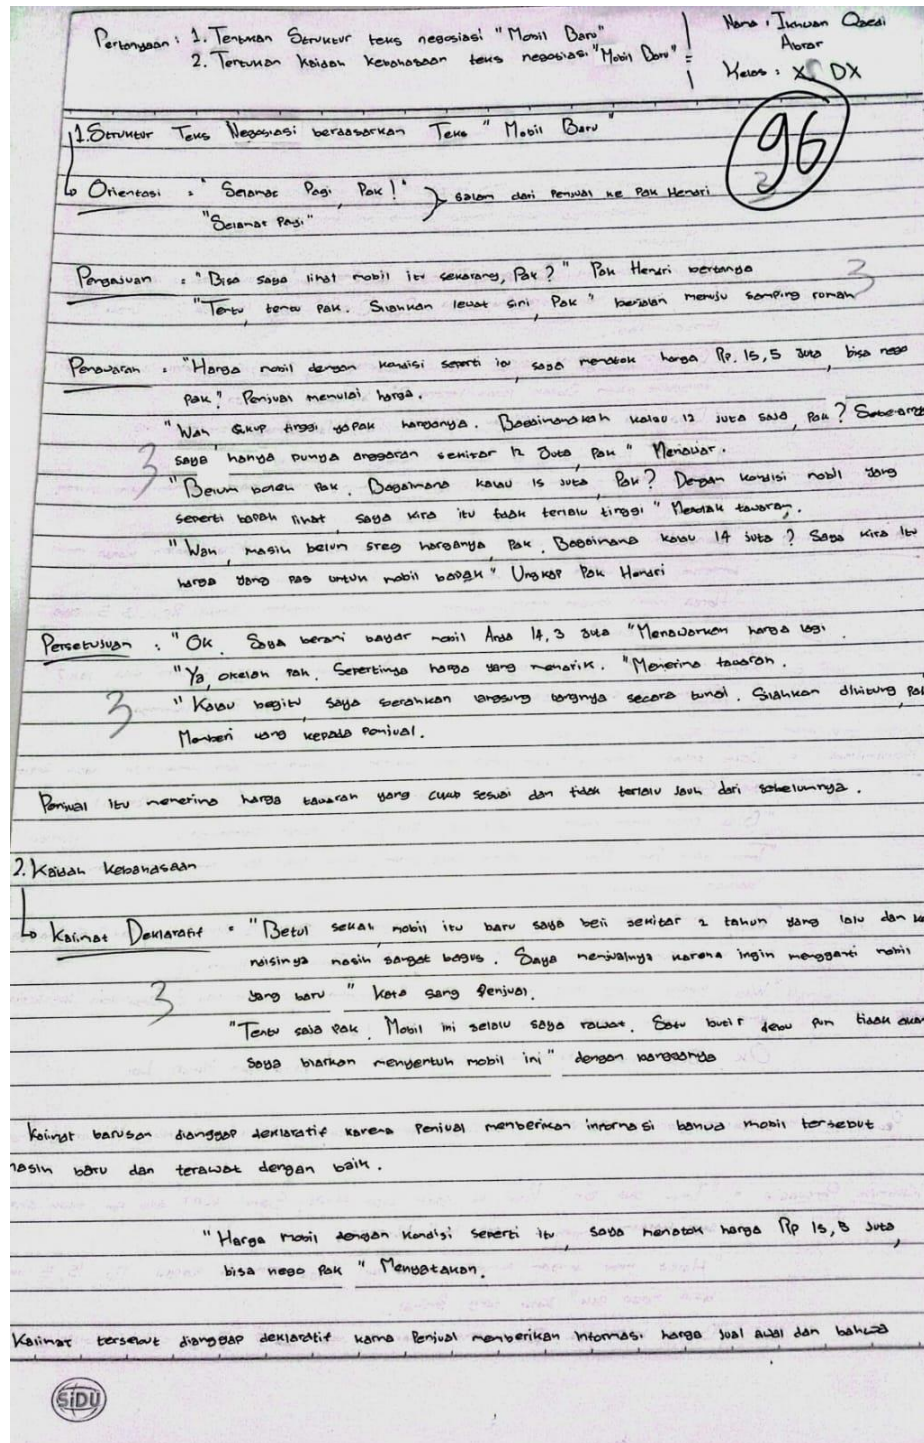 Pertanyaan : 1. Tentukan Struktur teks negosiasi "Mobil Baru"
2. Tentukan Kaidah kebahasaan teks negosiasi "Mobil Baru"
Nama : Ikhwan Qaedi
Abrar
Kelas : X DX
96
1. Struktur Teks Negosiasi berdasarkan Teks "Mobil Baru"
Orientasi : "Selamat Pagi, Pak!"
"Selamat Pagi"
salam dari Penjual ke Pak Hendri
3
Pengajuan : "Bisa saya lihat mobil itu sekarang, Pak?" Pak Hendri bertanya
"Tentu, tentu Pak. Silahkan lewat sini, Pak" berjalan menuju samping rumah
3
Penawaran : "Harga mobil dengan kondisi seperti itu, saya menatok harga Rp. 15,5 Juta, bisa nego
pak." Penjual memulai harga.
"Wah, cukup tinggi yapak harganya. Bagaimanakah kalau 12 juta saja, Pak? Sebenarnya
saya hanya punya anggaran sekitar 12 Juta, Pak" Menawar.
3
"Belum boleh Pak. Bagaimana kalau 15 juta, Pak? Dengan kondisi mobil yang
seperti bapak lihat, saya kira itu tidak terlalu tinggi" Menolak tawaran.
"Wah, masih belum sreg harganya, Pak. Bagaimana kalau 14 juta? Saya kira itu
harga yang pas untuk mobil bapak" Ungkap Pak Hendri
Persetujuan : "Ok. Saya berani bayar mobil Anda 14,3 Juta "Menawarkan harga lagi.
"Ya, okelah Pak. Sepertinya harga yang menarik. "Menerima tawaran.
3
"Kalau begitu, saya serahkan langsung uangnya secara tunai. Silahkan dihitung, pak
Memberi uang kepada Penjual.
Penjual itu menerima harga tawaran yang cukup sesuai dan tidak terlalu jauh dari sebelumnya.
2. Kaidah Kebahasaan
Kalimat Deklaratif : "Betul sekali, mobil itu baru saya beli sekitar 2 tahun yang lalu dan ko
ndisinya masih sangat bagus. Saya menjualnya karena ingin mengganti mobil
3
yang baru" Kata sang Penjual.
"Tentu saja Pak. Mobil ini selalu saya rawat. Satu butir debu pun tidak akan
saya biarkan menyentuh mobil ini" dengan bangganya
Kalimat barusan dianggap deklaratif karena Penjual memberikan informasi bahwa mobil tersebut
masih baru dan terawat dengan baik.
"Harga mobil dengan kondisi seperti itu, saya menatok harga Rp 15,5 Juta,
bisa nego Pak" Menyatakan.
Kalimat tersebut dianggap deklaratif karna Penjual memberikan informasi harga jual awal dan bahwa
SiDU